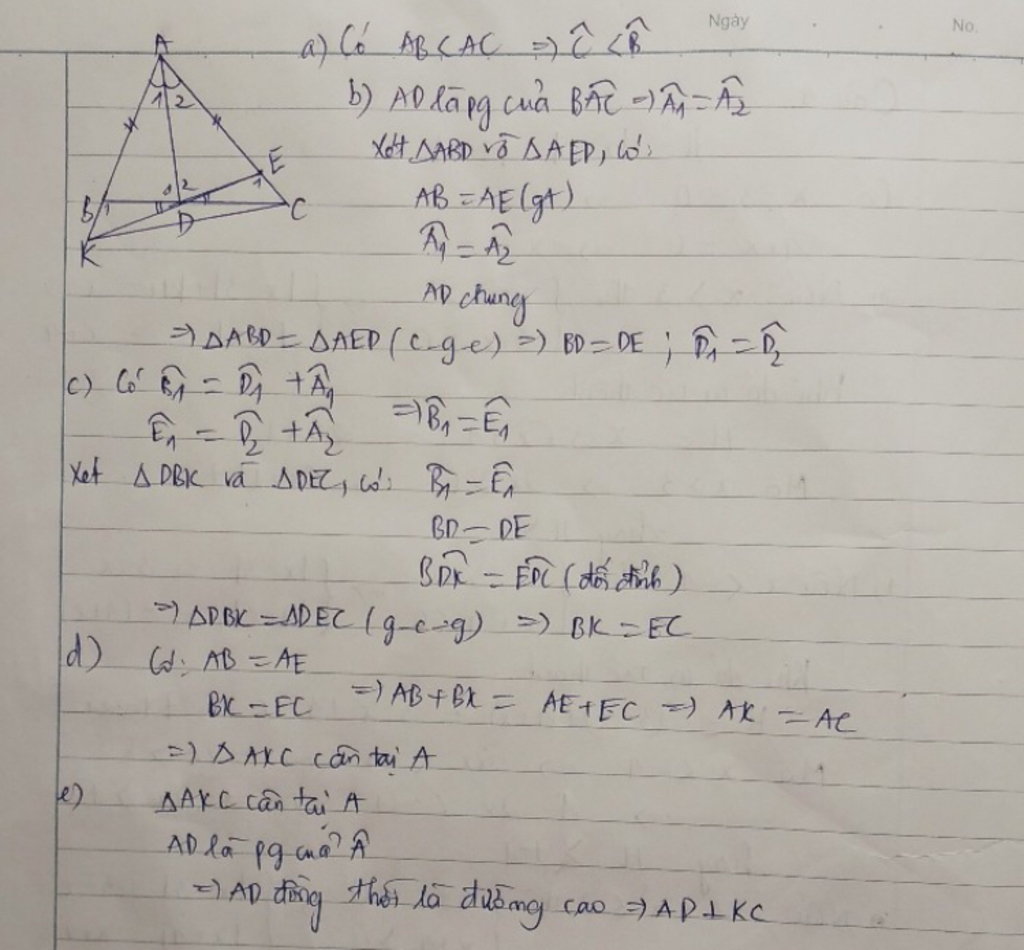 Ngày No.
a) Có AB < AC => Ĉ < B̂
b) AD là pg của BÂC => Â1 = Â2
Xét ΔABD và ΔAED, có:
AB = AE (gt)
Â1 = Â2
AD chung
=> ΔABD = ΔAED (c-g-c) => BD = DE ; D̂1 = D̂2
c) Có B̂1 = D̂1 + Â1
Ê1 = D̂2 + Â2 => B̂1 = Ê1
Xét ΔDBK và ΔDEC, có: B̂1 = Ê1
BD = DE
BD̂K = ED̂C (đối đỉnh)
=> ΔDBK = ΔDEC (g-c-g) => BK = EC
d) Có: AB = AE
BK = EC => AB + BK = AE + EC => AK = AC
=> ΔAKC cân tại A
e) ΔAKC cân tại A
AD là pg của Â
=> AD đồng thời là đường cao => AD ⊥ KC
A
1 2
E
1
B 1 1 2 C
D
K